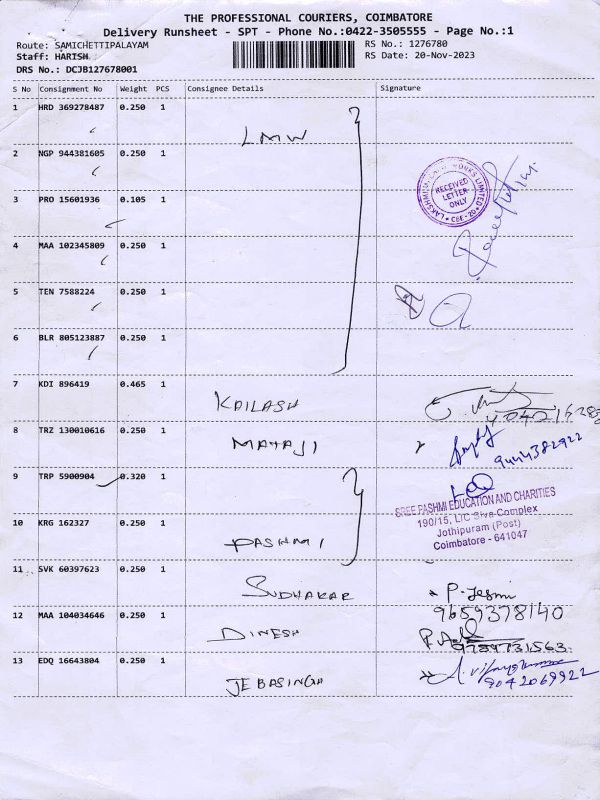 THE PROFESSIONAL COURIERS, COIMBATORE
Delivery Runsheet - SPT - Phone No.:0422-3505555 - Page No.:1
Route: SAMICHETTIPALAYAM RS No.: 1276780
Staff: HARISH RS Date: 20-Nov-2023
DRS No.: DCJB127678001
S No Consignment No Weight PCS Consignee Details Signature
1 HRD 369278487 0.250 1
LMW
2 NGP 944381605 0.250 1
RECEIVED
LETTER
ONLY
3 PRO 15601936 0.105 1
4 MAA 102345809 0.250 1
5 TEN 7588224 0.250 1
6 BLR 805123887 0.250 1
7 KDI 896419 0.465 1
KAILASH
8 TRZ 130010616 0.250 1
MATAJI 9444382922
9 TRP 5900904 0.320 1
SREE PASHMI EDUCATION AND CHARITIES
190/15, LIC Siva Complex
Jothipuram (Post)
Coimbatore - 641047
10 KRG 162327 0.250 1
PASHMI
11 SVK 60397623 0.250 1
SUDHAKAR P. Jesmi
9659378140
12 MAA 104034646 0.250 1
DINESH
9789731563
13 EDQ 16643804 0.250 1
JEBASINGH 9042069922